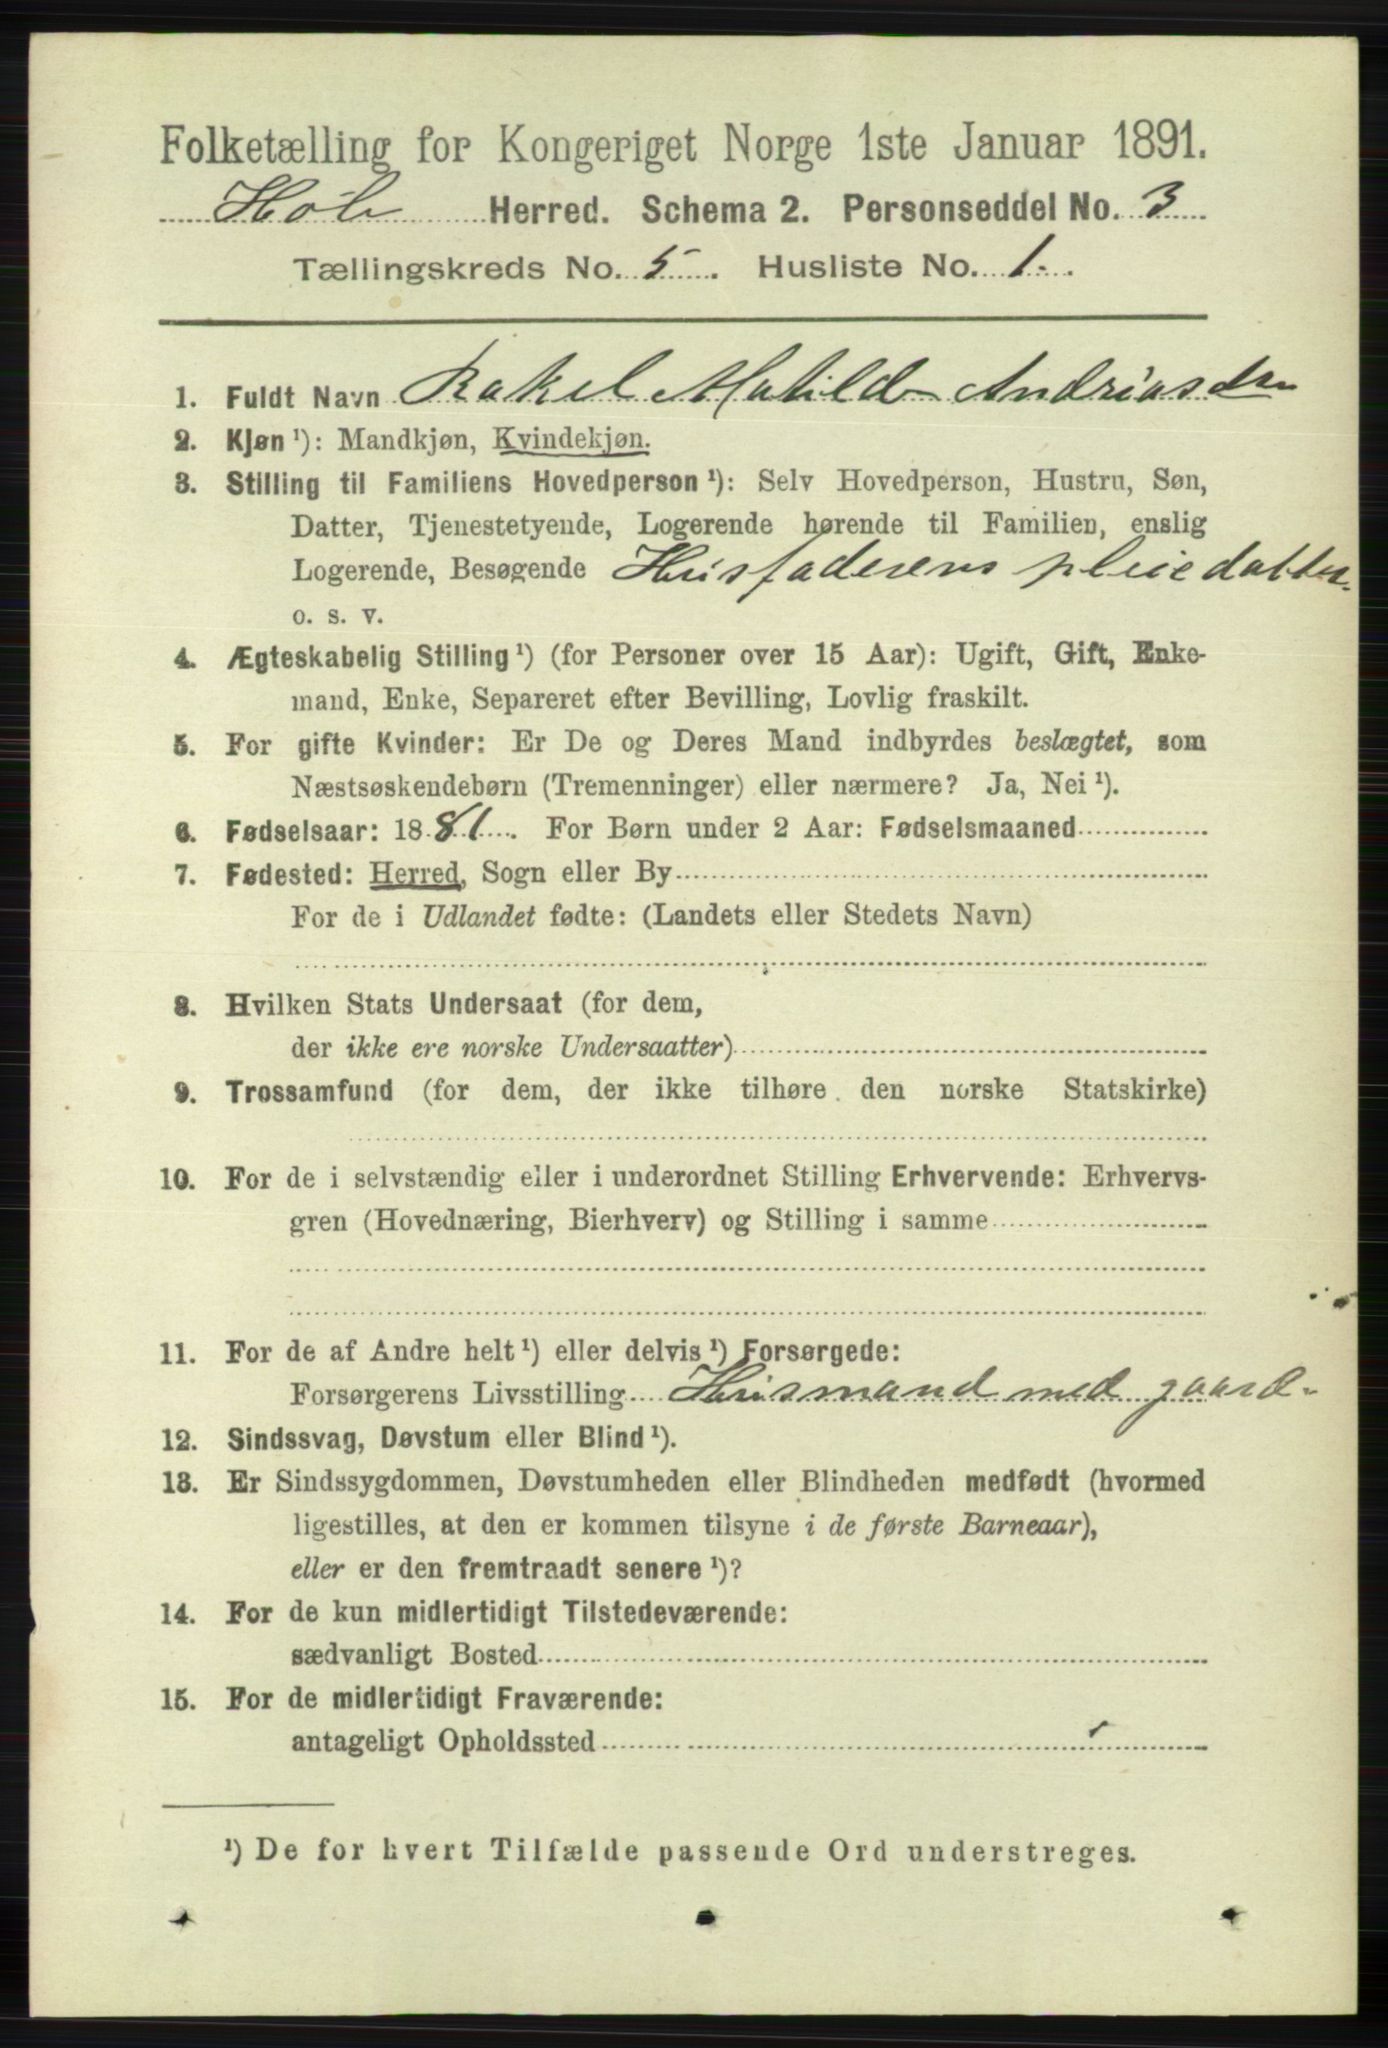 Folketælling for Kongeriget Norge 1ste Januar 1891.
Høle Herred. Schema 2. Personseddel No. 3
Tællingskreds No. 5. Husliste No. 1.
1. Fuldt Navn Rakel Matilde Andriasdr
2. Kjøn ¹): Mandkjøn, Kvindekjøn.
3. Stilling til Familiens Hovedperson ¹): Selv Hovedperson, Hustru, Søn,
Datter, Tjenestetyende, Logerende hørende til Familien, enslig
Logerende, Besøgende Husfaderens pleiedatter.
o. s. v.
4. Ægteskabelig Stilling ¹) (for Personer over 15 Aar): Ugift, Gift, Enke-
mand, Enke, Separeret efter Bevilling, Lovlig fraskilt.
5. For gifte Kvinder: Er De og Deres Mand indbyrdes beslægtet, som
Næstsøskendebørn (Tremenninger) eller nærmere? Ja, Nei ¹).
6. Fødselsaar: 1881. For Børn under 2 Aar: Fødselsmaaned
7. Fødested: Herred, Sogn eller By
For de i Udlandet fødte: (Landets eller Stedets Navn)
8. Hvilken Stats Undersaat (for dem,
der ikke ere norske Undersaatter)
9. Trossamfund (for dem, der ikke tilhøre den norske Statskirke)
10. For de i selvstændig eller i underordnet Stilling Erhvervende: Erhvervs-
gren (Hovednæring, Bierhverv) og Stilling i samme
11. For de af Andre helt ¹) eller delvis ¹) Forsørgede:
Forsørgerens Livsstilling Husmand med gaard.
12. Sindssvag, Døvstum eller Blind ¹).
13. Er Sindssygdommen, Døvstumheden eller Blindheden medfødt (hvormed
ligestilles, at den er kommen tilsyne i de første Barneaar),
eller er den fremtraadt senere ¹)?
14. For de kun midlertidigt Tilstedeværende:
sædvanligt Bosted
15. For de midlertidigt Fraværende:
antageligt Opholdssted
¹) De for hvert Tilfælde passende Ord understreges.